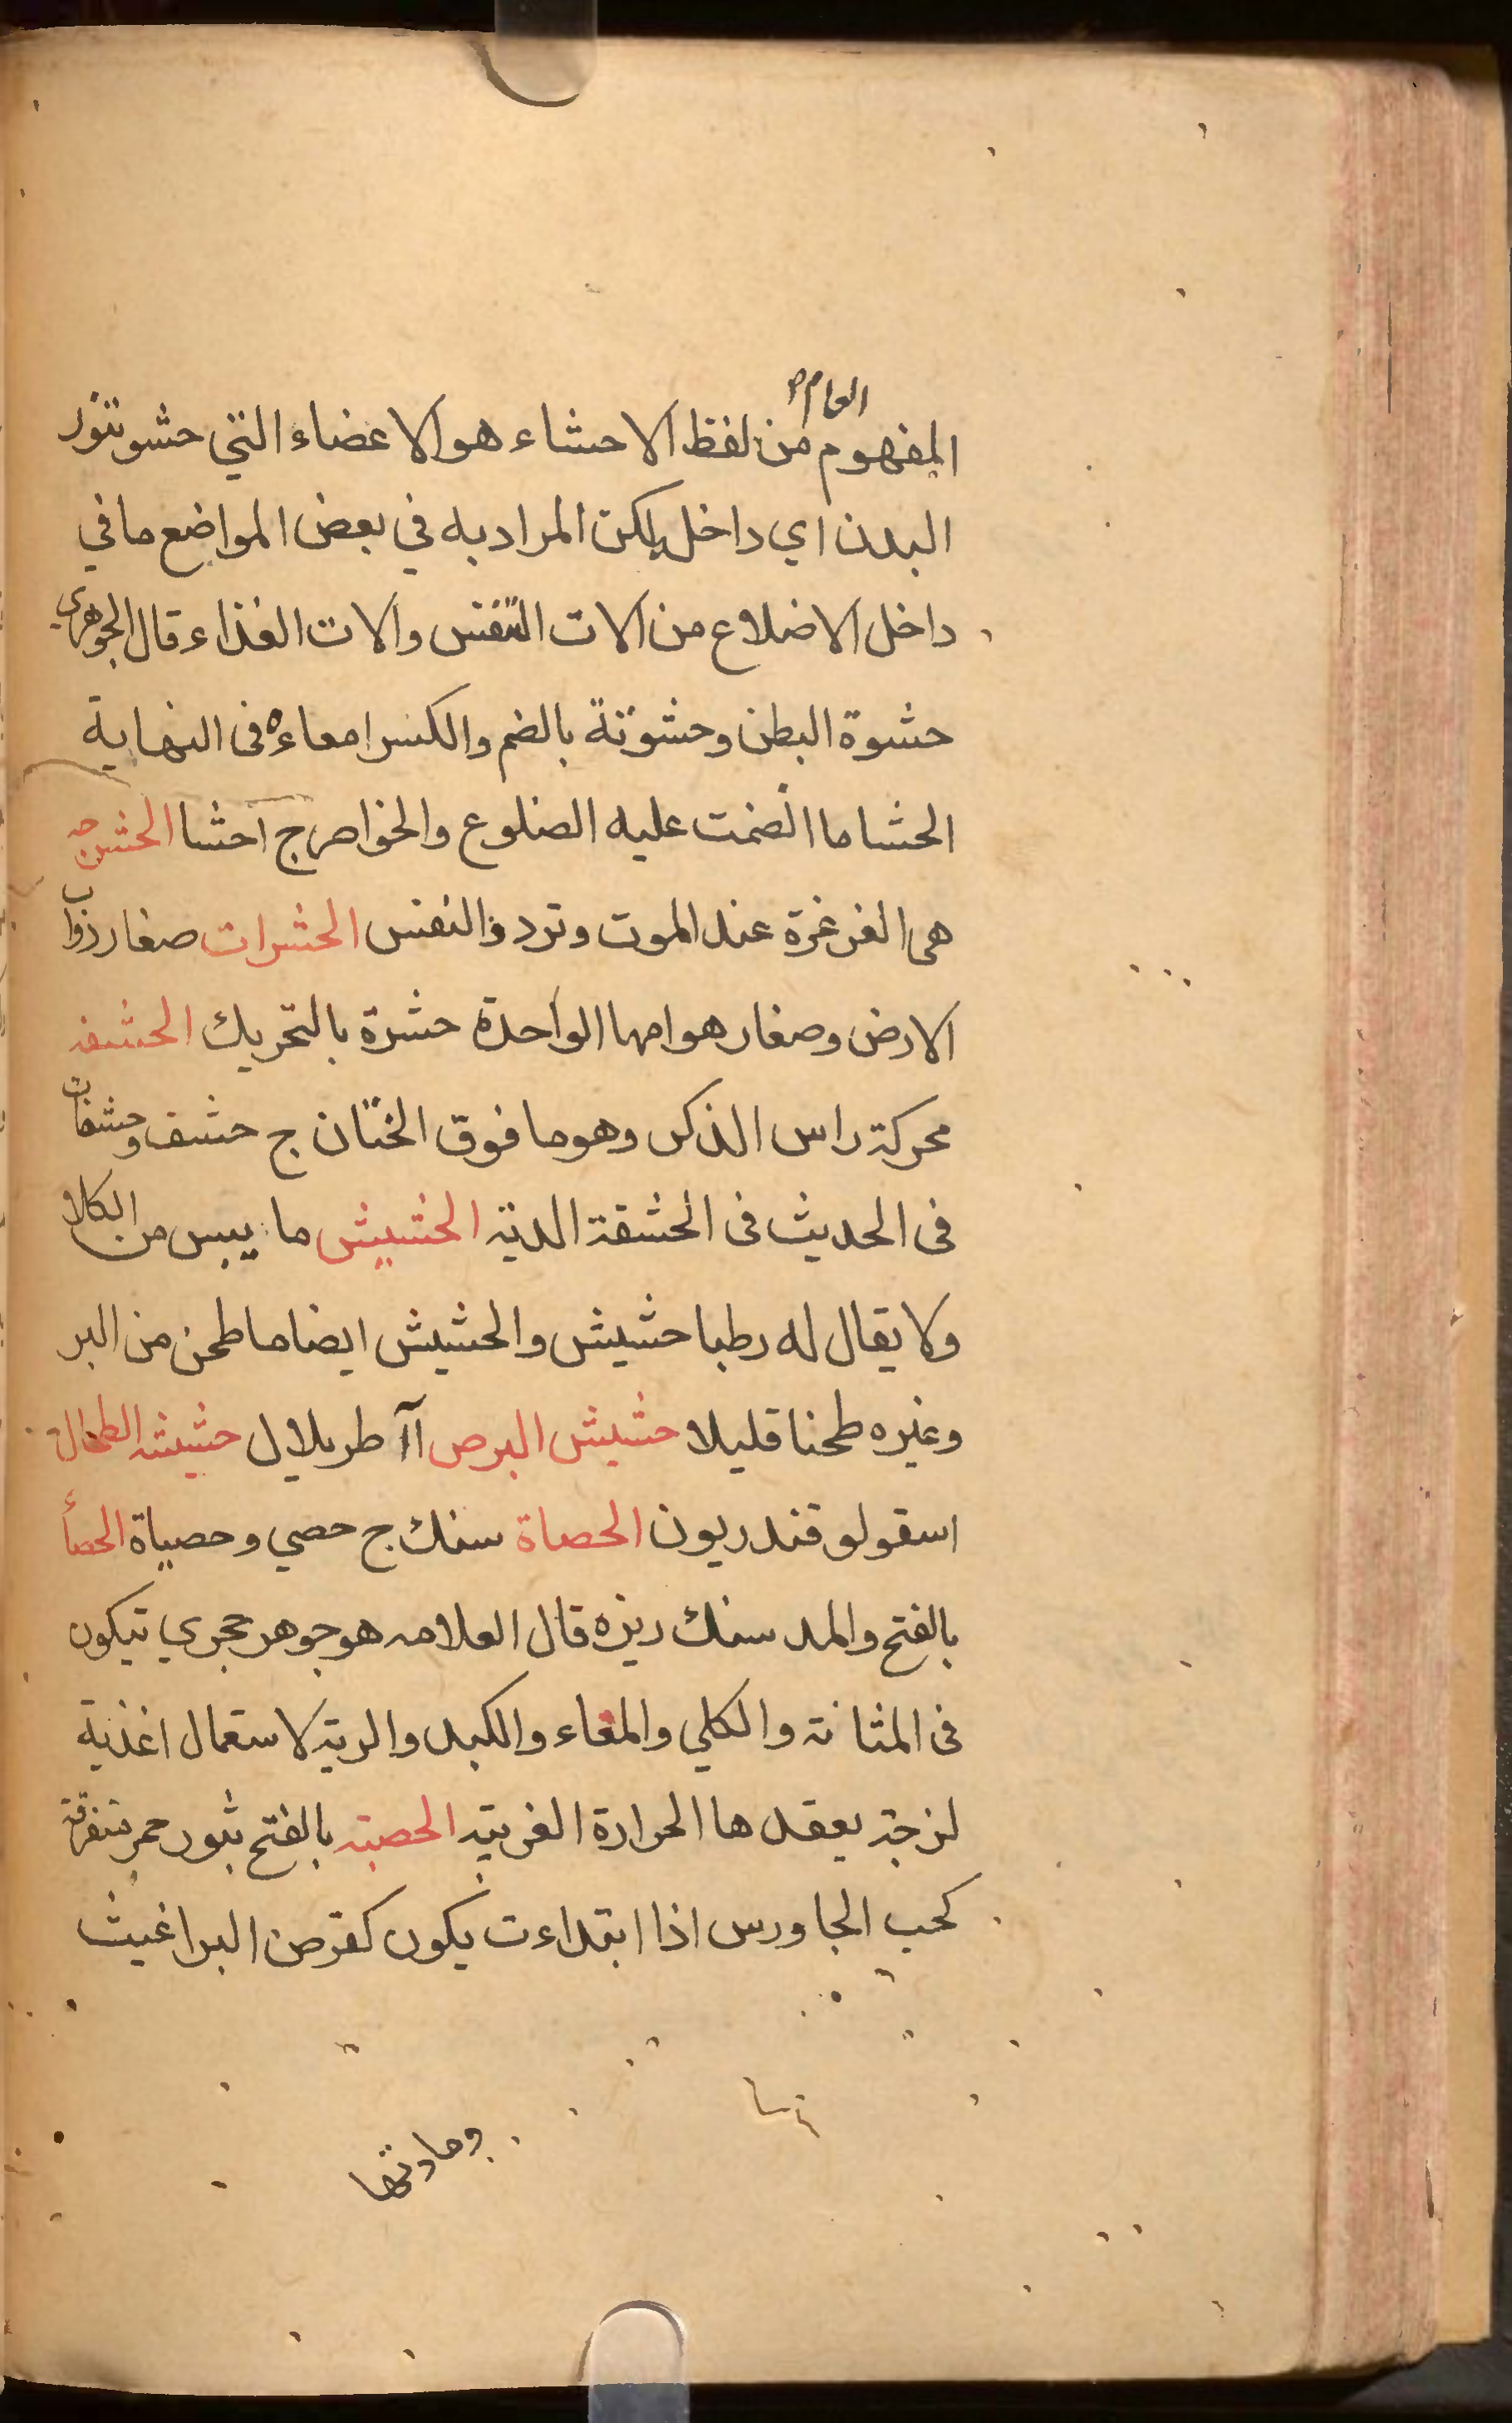 العام
المفهوم من لفظ الاحشاء هو الاعضاء التي حشو تنور
البدن اي داخل لكن المراد به في بعض المواضع ما في
داخل الاضلاع من الات التنفس والات الغذاء قال الجوهري
حشوة البطن وحشوته بالضم والكسر امعاءه فى النهاية
الحشا ما انضمت عليه الضلوع والخواصر ج احشا الحشرجه
هى الغرغرة عند الموت وتردد النفس الحشرات صغار دواب
الارض وصغار هوامها الواحدة حشرة بالتحريك الحشفه
محركة راس الذكر وهو ما فوق الختان ج حشف وحشفات
فى الحديث فى الحشفة الدية الحشيش ما يبس من الكلا
ولا يقال له رطبا حشيش والحشيش ايضا ما طحن من البر
وغيره طحنا قليلا حشيش البرص آآطريلال حشيشه الطحال
اسقولوقندريون الحصاة سنك ج حصي وحصياة الحصأ
بالفتح والمد سنك ريزه قال العلامه هو جوهر حجري تيكون
فى المثانة والكلي والمعاء والكبد والرية لاستعمال اغذية
لزجة يعقدها الحرارة الغريبة الحصبة بالفتح بثور حمر متفرقة
كحب الجاورس اذا ابتداءت يكون كقرص البراغيث
ومادتها